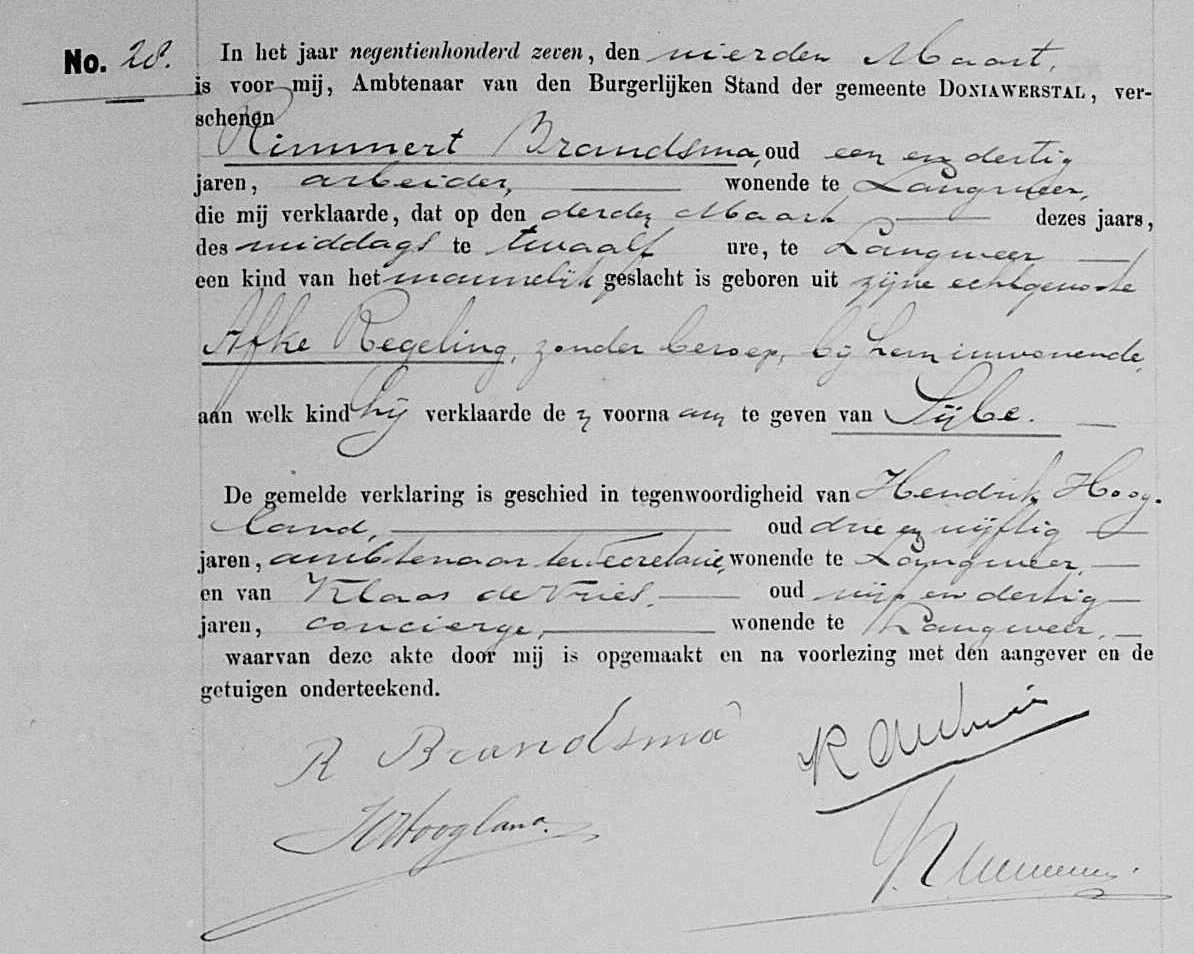 No. 28. In het jaar negentienhonderd zeven, den vierden Maart,
is voor mij, Ambtenaar van den Burgerlijken Stand der gemeente DONIAWERSTAL, ver-
schenen
Rimmert Brandsma, oud een en dertig
jaren, arbeider, wonende te Langweer,
die mij verklaarde, dat op den derden Maart dezes jaars,
des middags te twaalf ure, te Langweer
een kind van het mannelijk geslacht is geboren uit zijne echtgenoote
Afke Regeling, zonder beroep, bij hem inwonende,
aan welk kind hij verklaarde de n voornaam te geven van Sijbe.
De gemelde verklaring is geschied in tegenwoordigheid van Hendrik Hoog-
land, oud drie en vijftig
jaren, ambtenaar ter secretarie, wonende te Langweer,
en van Klaas de Vries, oud vijf en dertig
jaren, concierge, wonende te Langweer,
waarvan deze akte door mij is opgemaakt en na voorlezing met den aangever en de
getuigen onderteekend.
R Brandsma
K de Vries
H Hoogland.